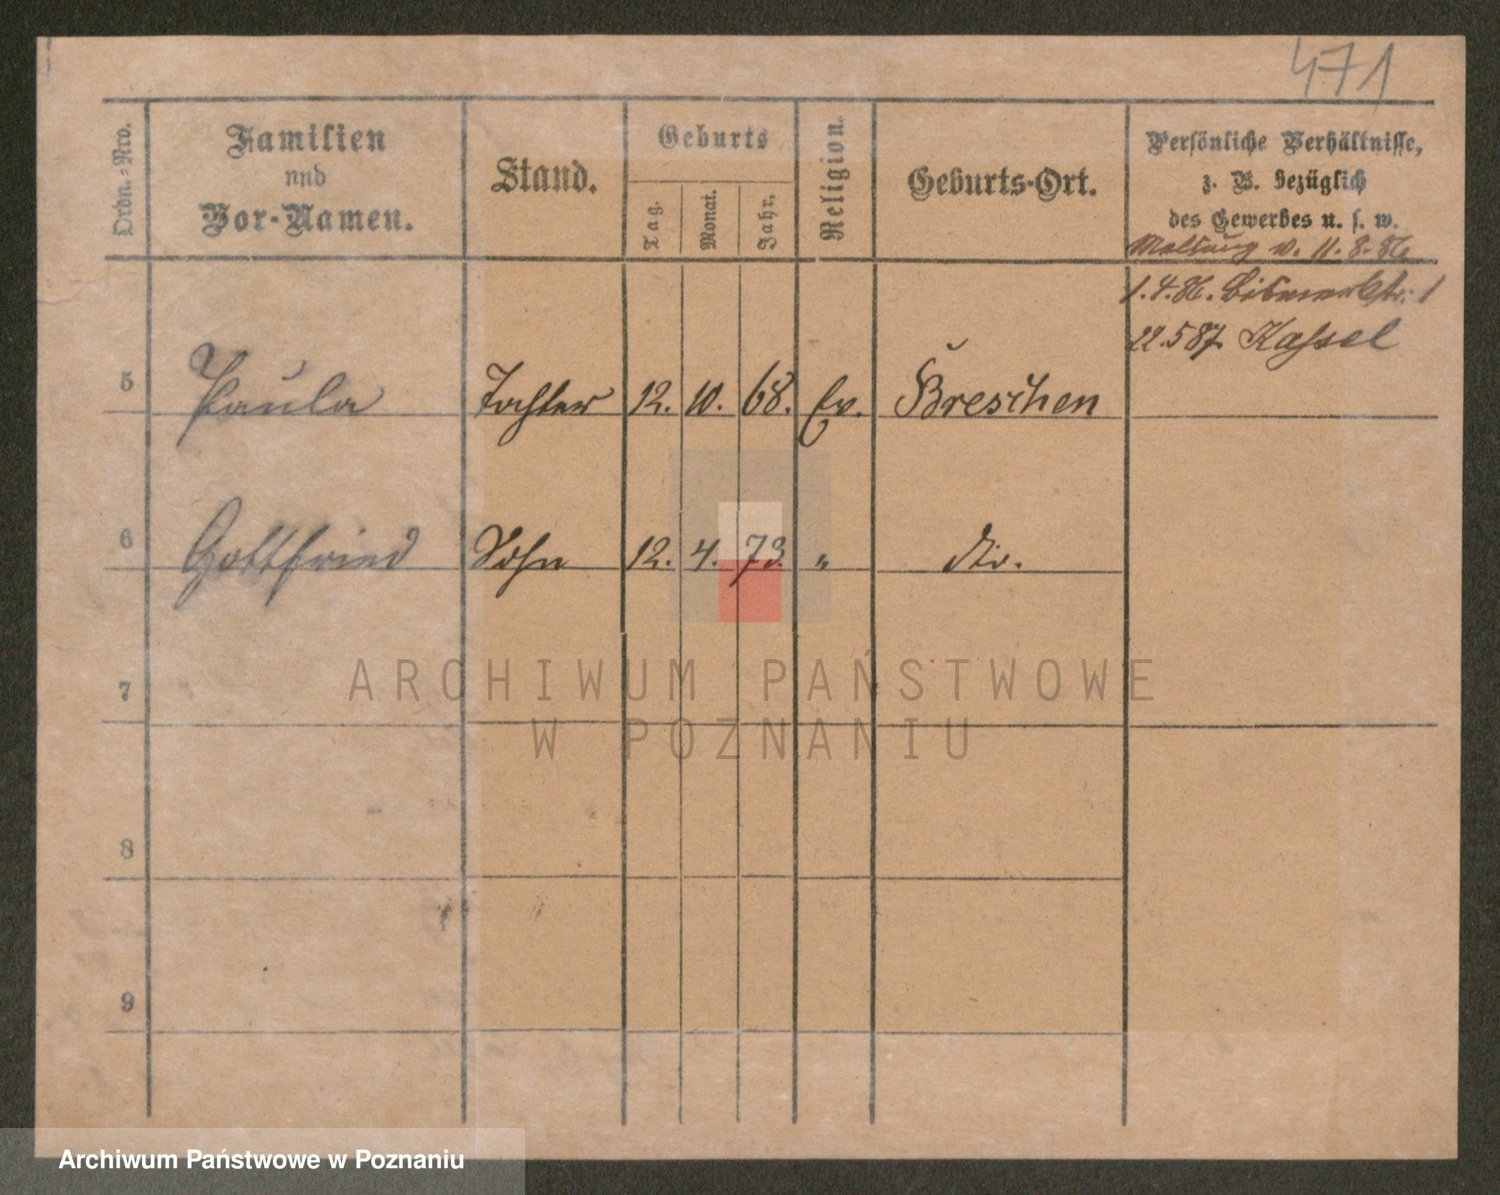 471
Ordn.-Nro.
Familien
und
Vor-Namen.
Stand.
Geburts
Tag.
Monat.
Jahr.
Religion.
Geburts-Ort.
Persönliche Verhältnisse,
z. B. bezüglich
des Gewerbes u. s. w.
Meldung v. 11.8.86
1.4.86. Bismarckstr. 1
22.587 Kassel
5 Paula Tochter 12. 10. 68. Ev. Breschen
6 Gottfried Sohn 12. 4. 73. " dto.
7
ARCHIWUM PAŃSTWOWE
W POZNANIU
8
9
Archiwum Państwowe w Poznaniu